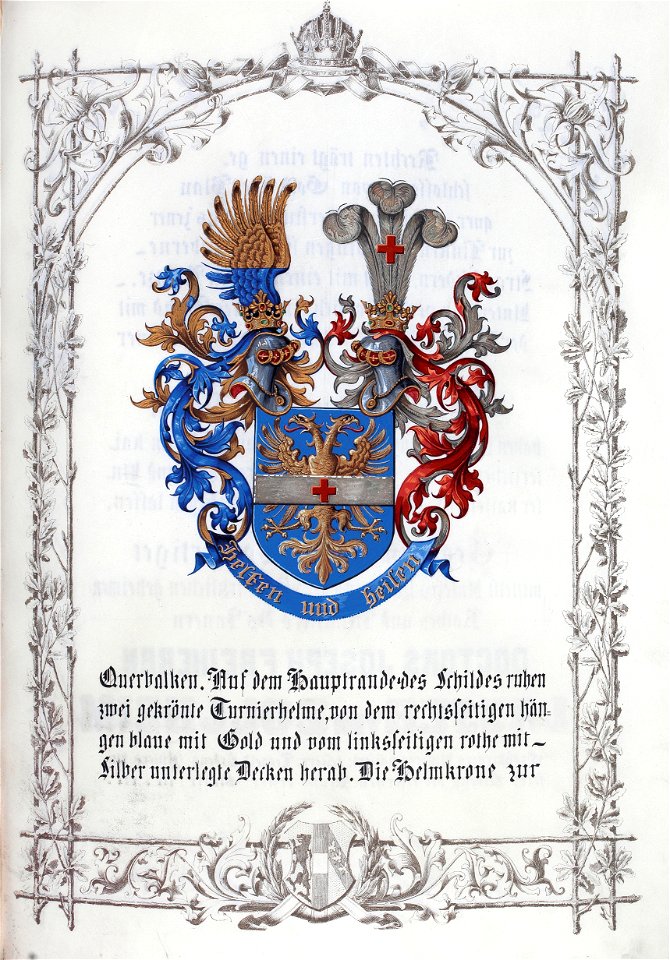 Helfen und heilen
Querbalken. Auf dem Hauptrande des Schildes ruhen
zwei gekrönte Turnierhelme, von dem rechtsseitigen hän-
gen blaue mit Gold und vom linksseitigen rothe mit
Silber unterlegte Decken herab. Die Helmkrone zur